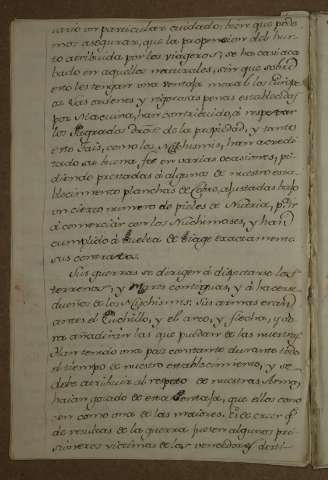 un particular cuidado: bien que pode
mos asegurar, que la propension del hur
to atribuida por los viageros, se ha casi aca
bado en aquellos naturales, sin que sobre
esto les tengan una ventaja moral los Europe
os. Las ordenes y rigorosas penas establecidas
por Macuina, han contribuido, á
los Sagrados dros. de la propiedad, y tanto
estos Tais, como los Nuchimas, han acredi
tado su buena fee en varias ocasiones, pi
diendo prestadas á algunos de nuestro esta
blecimiento planchas de Cobre, ajustadas bajo
un cierto numero de pieles de Nutria, pa. ir
á comerciar con los Nuchimases, y han
cumplido á buelta de Viage exactamente
sus contratos.
Sus guerras se dirigen á disputarse los
terrenos, y Mares contiguas, y á hacerse
dueños de los Mischimis. Sus armas eran
antes el Cuchillo, y el arco, y flecha, y aho
ra añadirán las que puedan de las nuestras.
Han tenido una paz constante durante todo
el tiempo de nuestro establecimiento, y se
debe atribuir al respeto de nuestras Armas,
haian gozado de esta Ventaja, que ellos cono
cen como una de las maiores. Es de creer qe.
de resultas de la guerra fuesen algunos pri
sioneros victimas de los vencedores,